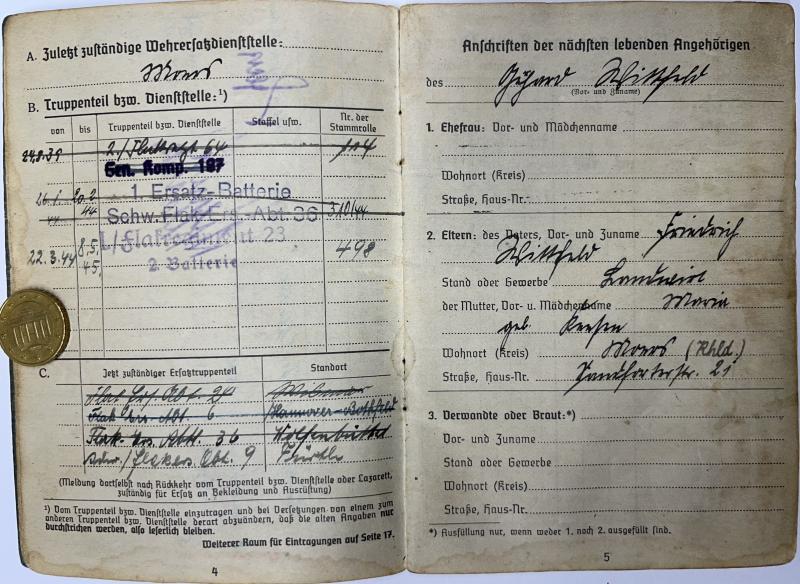 A. Zuletzt zuständige Wehrersatzdienststelle:
Moers
B. Truppenteil bzw. Dienststelle:¹)
von bis Truppenteil bzw. Dienststelle Staffel usw. Nr. der Stammrolle
24.8.39 2./Flakregt 64 114
Gen. Komp. 187
26.1. 20.2 1. Ersatz-Batterie
44 44 Schw. Flak-Ers.-Abt. 36 310/44
22.3.44 8.5. 45. I./Flakregiment 23 498
2. Batterie
C. Jetzt zuständiger Ersatztruppenteil Standort
Flak Ers. Abt. 24
Flak Ers Abt. 6 Hannover-Bothfeld
Flak. Ers. Abt. 36 Wolfenbüttel
Abt. 9 Fürth
(Meldung dortselbst nach Rückkehr vom Truppenteil bzw. Dienststelle oder Lazarett,
zuständig für Ersatz an Bekleidung und Ausrüstung)
¹) Vom Truppenteil bzw. Dienststelle einzutragen und bei Versetzungen von einem zum
anderen Truppenteil bzw. Dienststelle derart abzuändern, daß die alten Angaben nur
durchstrichen werden, also leserlich bleiben.
Weiterer Raum für Eintragungen auf Seite 17.
4
Anschriften der nächsten lebenden Angehörigen
des Wittfeld
(Vor- und Zuname)
1. Ehefrau: Vor- und Mädchenname
Wohnort (Kreis)
Straße, Haus-Nr.
2. Eltern: des Vaters, Vor- und Zuname Friedrich
Wittfeld
Stand oder Gewerbe Landwirt
der Mutter, Vor- u. Mädchenname Maria
geb.
Wohnort (Kreis) Moers (Rhld.)
Straße, Haus-Nr. 21
3. Verwandte oder Braut:*)
Vor- und Zuname
Stand oder Gewerbe
Wohnort (Kreis)
Straße, Haus-Nr.
*) Ausfüllung nur, wenn weder 1. noch 2. ausgefüllt sind.
5